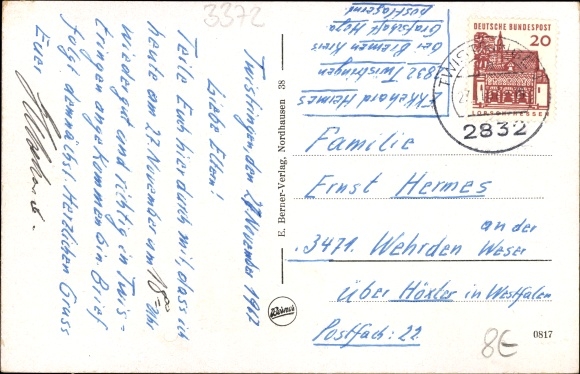 3372
Twistringen, den 27. November 1967
Liebe Eltern!
Teile Euch hierdurch mit, dass ich
heute am 27. November um 18°° Uhr
wieder gut und richtig in Twis-
tringen angekommen bin. Brief
folgt demnächst. Herzlichen Gruss
Euer
E. Berner-Verlag, Nordhausen 38
Berner
Ekkehard Hermes
2832 Twistringen
Bez. Bremen Kreis
Grafschaft Hoya
postlagernd
DEUTSCHE BUNDESPOST
20
LORSCH/HESSEN
TWISTRINGEN
2832
Familie
Ernst Hermes
3471 Wehrden an der
Weser
über Höxter in Westfalen
Postfach: 22
8€
0817